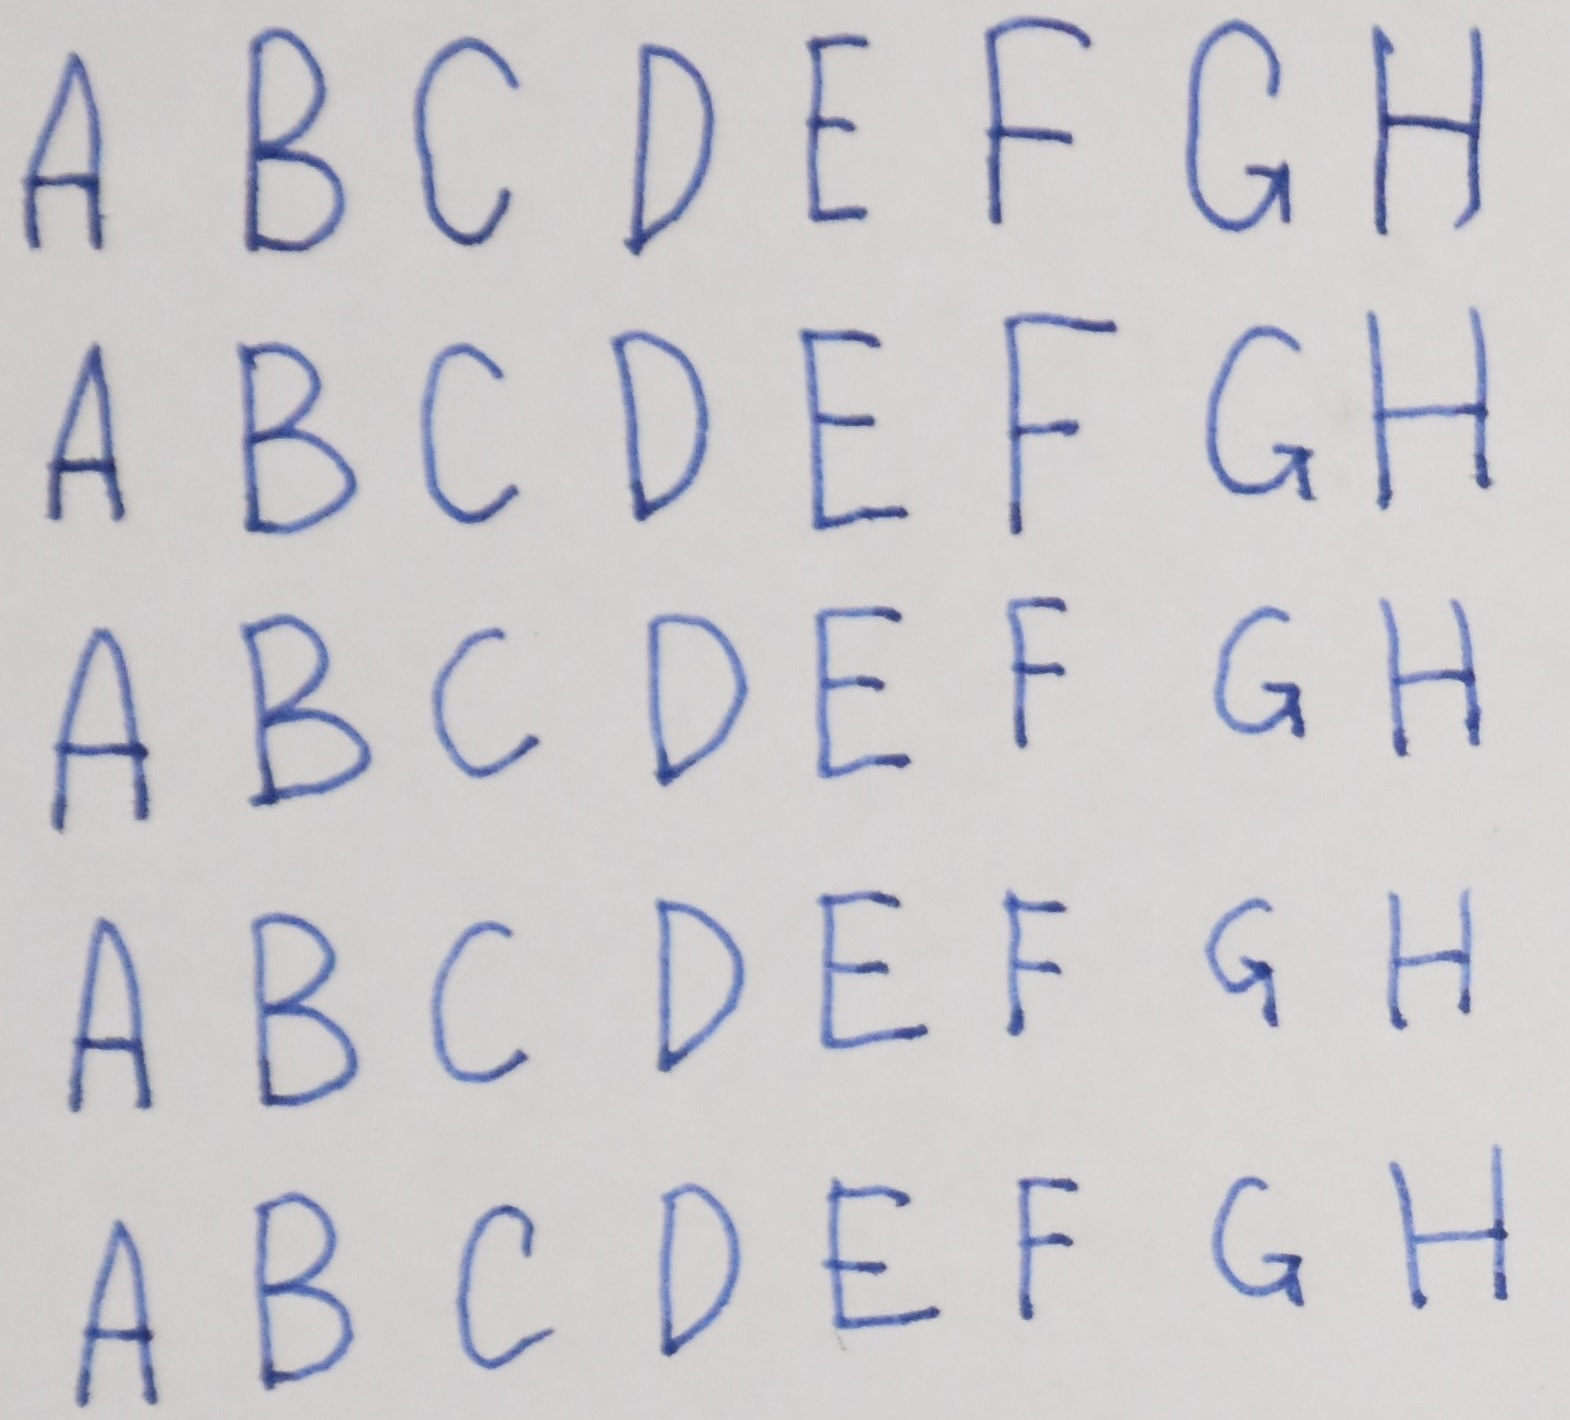 A B C D E F G H
A B C D E F G H
A B C D E F G H
A B C D E F G H
A B C D E F G H